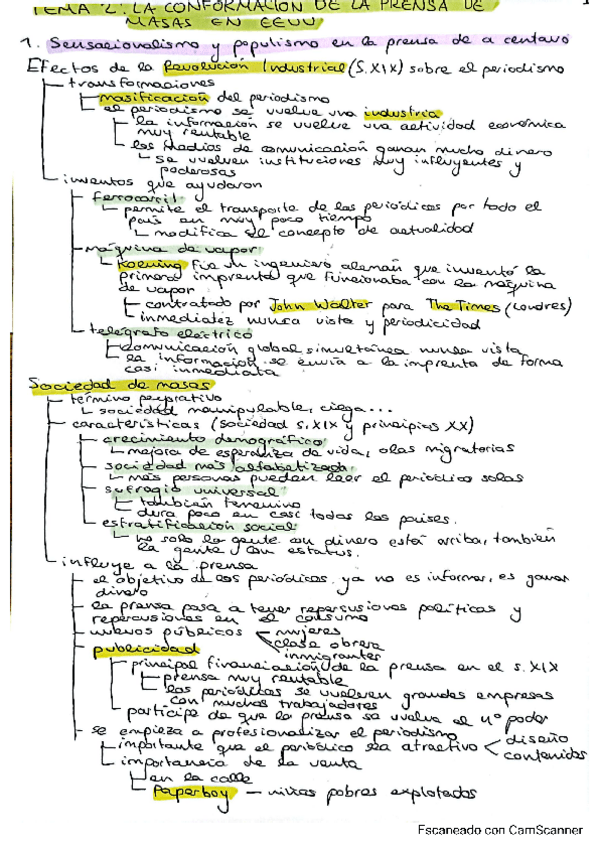 TEMA 2: LA CONFORMACIÓN DE LA PRENSA DE
MASAS EN EEUU
1. Sensacionalismo y populismo en la prensa de a centavo
Efectos de la Revolución Industrial (S.XIX) sobre el periodismo
transformaciones
masificación del periodismo
el periodismo se vuelve una industria
la información se vuelve una actividad económica
muy rentable
los medios de comunicación ganan mucho dinero
se vuelven instituciones muy influyentes y
poderosas
inventos que ayudaron
ferrocarril
permite el transporte de los periódicos por todo el
país en muy poco tiempo
modifica el concepto de actualidad
máquina de vapor
Koening fue un ingeniero alemán que inventó la
primera imprenta que funcionaba con la máquina
de vapor
contratado por John Walter para The Times (Londres)
inmediatez nunca vista y periodicidad
telégrafo eléctrico
comunicación global simultánea nunca vista
la información se envía a la imprenta de forma
casi inmediata
Sociedad de masas
término peyorativo
sociedad manipulable, ciega...
características (sociedad S.XIX y principios XX)
crecimiento demográfico
mejora de esperanza de vida, olas migratorias
sociedad más alfabetizada
más personas pueden leer el periódico solas
sufragio universal
también femenino
dura poco en casi todos los países.
estratificación social
no solo la gente con dinero está arriba, también
la gente con estatus.
influye a la prensa
el objetivo de los periódicos ya no es informar, es ganar
dinero
la prensa pasa a tener repercusiones políticas y
repercusiones en el consumo
nuevos públicos
mujeres
clase obrera
inmigrantes
publicidad
principal financiación de la prensa en el S.XIX
prensa muy rentable
los periódicos se vuelven grandes empresas
con muchos trabajadores
partícipe de que la prensa se vuelva el 4º poder
se empieza a profesionalizar el periodismo
importante que el periódico sea atractivo
diseño
contenidos
importancia de la venta
en la calle
Paperboy — niñxs pobres explotados
Escaneado con CamScanner